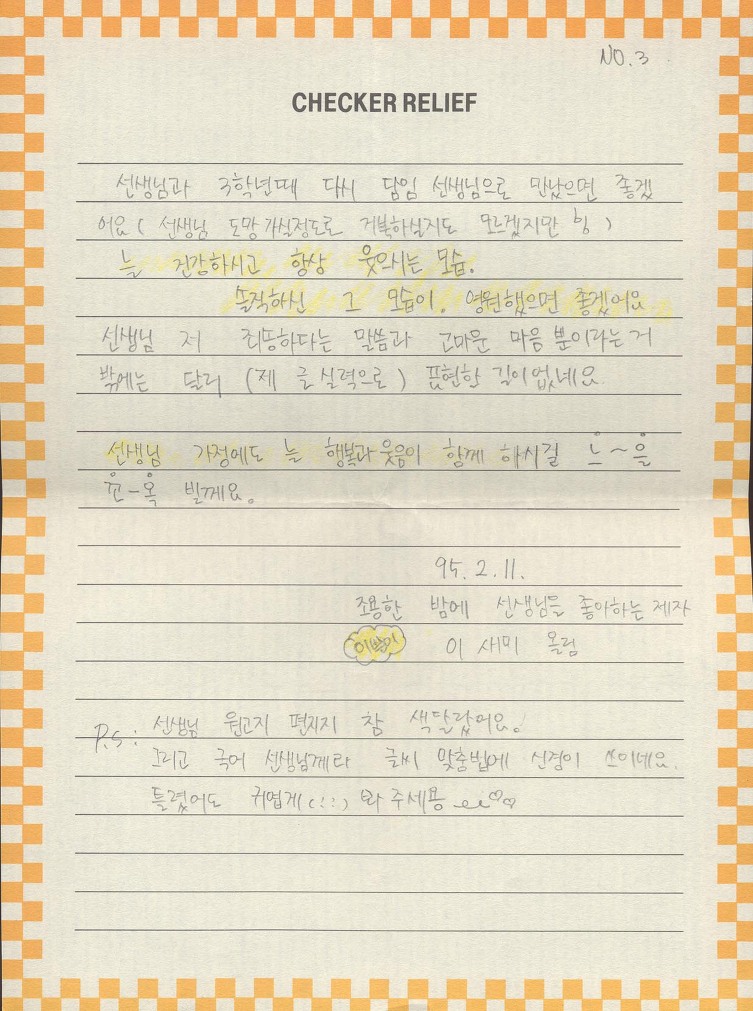 NO.3
CHECKER RELIEF
선생님과 3학년때 다시 담임 선생님으로 만났으면 좋겠
어요 ( 선생님 도망가실정도로 거북하실지도 모르겠지만 힝 )
늘 건강하시고 항상 웃으시는 모습.
솔직하신 그 모습이. 영원했으면 좋겠어요
선생님 저 죄송하다는 말씀과 고마운 마음 뿐이라는 거
밖에는 달리 (제 글실력으로) 표현할 길이 없네요.
선생님 가정에도 늘 행복과 웃음이 함께 하시길 느~을
꼬-옥 빌께요.
95. 2. 11.
조용한 밤에 선생님을 좋아하는 제자
이 새미 올림
P.S : 선생님 원고지 편지지 참 색달랐어요.
그리고 국어 선생님께라 글씨 맞춤법에 신경이 쓰이네요.
틀렸어도 귀엽게(!!) 봐 주세용